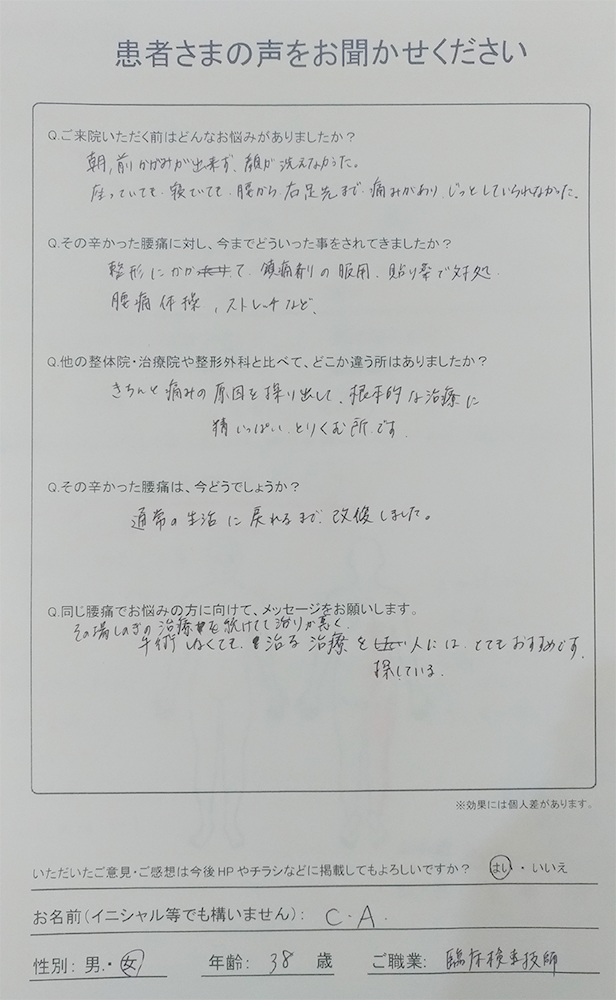 患者さまの声をお聞かせください
Q.ご来院いただく前はどんなお悩みがありましたか？
朝、前かがみが出来ず、顔が洗えなかった。
座っていても、寝ていても、腰から右足先まで痛みがあり、じっとしていられなかった。
Q.その辛かった腰痛に対し、今までどういった事をされてきましたか？
整形にかかって、鎮痛剤の服用、貼り薬で対処。
腰痛体操、ストレッチなど。
Q.他の整体院・治療院や整形外科と比べて、どこか違う所はありましたか？
きちんと痛みの原因を探り出して、根本的な治療に
精いっぱい、とりくむ所です。
Q.その辛かった腰痛は、今どうでしょうか？
通常の生活に戻れるまで、改復しました。
Q.同じ腰痛でお悩みの方に向けて、メッセージをお願いします。
その場しのぎの治療を続けてて治りが悪く、
手術しなくても、治る治療を 人には、とてもおすすめです。
探している
※効果には個人差があります。
いただいたご意見・ご感想は今後HPやチラシなどに掲載してもよろしいですか？ はい・いいえ
お名前(イニシャル等でも構いません)： C.A.
性別：男・女 年齢：38 歳 ご職業：臨床検査技師